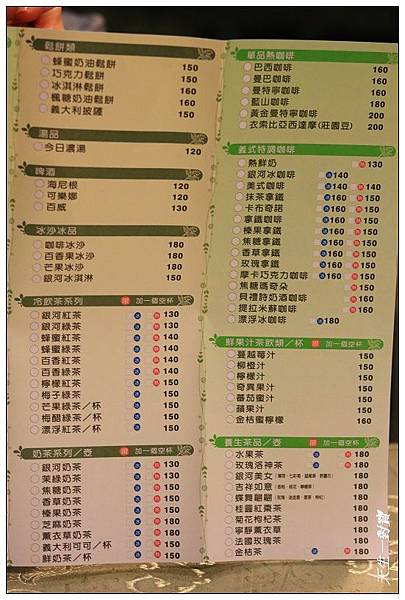 鬆餅類
蜂蜜奶油鬆餅 150
巧克力鬆餅 150
冰淇淋鬆餅 160
楓糖奶油鬆餅 160
義大利披薩 150
湯品
今日濃湯 120
啤酒
海尼根 120
可樂娜 120
百威 130
冰沙冰品
咖啡冰沙 180
百香果冰沙 180
芒果冰沙 180
銀河冰淇淋 180
冷飲茶系列 加一個空杯
銀河紅茶 冰 熱 130
銀河綠茶 冰 熱 130
蜂蜜紅茶 冰 熱 140
蜂蜜綠茶 冰 熱 140
百香紅茶 冰 熱 140
百香綠茶 冰 熱 140
檸檬紅茶 冰 熱 150
梅子綠茶 150
芒果綠茶/杯 150
梅醋綠茶/杯 150
漂浮紅茶/杯 150
奶茶系列/壺 加一個空杯
銀河奶茶 冰 熱 130
茉綠奶茶 冰 熱 130
焦糖奶茶 冰 熱 150
香草奶茶 冰 熱 150
榛果奶茶 冰 熱 150
芝麻奶茶 冰 熱 180
薰衣草奶茶 冰 熱 180
義大利可可/杯 冰 熱 150
鮮奶茶/杯 冰 熱 150
單品熱咖啡
巴西咖啡 160
曼巴咖啡 160
曼特寧咖啡 160
藍山咖啡 180
黃金曼特寧咖啡 200
衣索比亞西達摩(莊園豆) 200
義式特調咖啡
熱鮮奶 熱130
銀河冰咖啡 冰140
美式咖啡 冰140 熱140
抹茶拿鐵 冰160 熱150
卡布奇諾 冰160 熱150
拿鐵咖啡 冰160 熱150
榛果拿鐵 冰160 熱150
焦糖拿鐵 冰160 熱150
香草拿鐵 冰160 熱150
玫瑰拿鐵 冰160 熱150
摩卡巧克力咖啡 冰160 熱150
焦糖瑪奇朵 熱150
貝禮詩奶酒咖啡 熱160
提拉米蘇咖啡 熱160
漂浮冰咖啡 冰180
鮮果汁茶飲類/杯 加一個空杯
蔓越莓汁 150
柳橙汁 150
檸檬汁 150
奇異果汁 150
蕃茄蜜汁 150
蘋果汁 150
金桔蜜檸檬 160
養生茶品/壺 加一個空杯
水果茶 冰 熱 180
玫瑰洛神茶 冰 熱 180
銀河美女 熱 180
吉祥如意 熱 180
蝶舞翩翩 熱 180
桂圓紅棗茶 熱 180
菊花枸杞茶 熱 180
寧靜薰衣草 熱 180
法國玫瑰茶 熱 180
金桔茶 冰 熱 180
天生一對寶